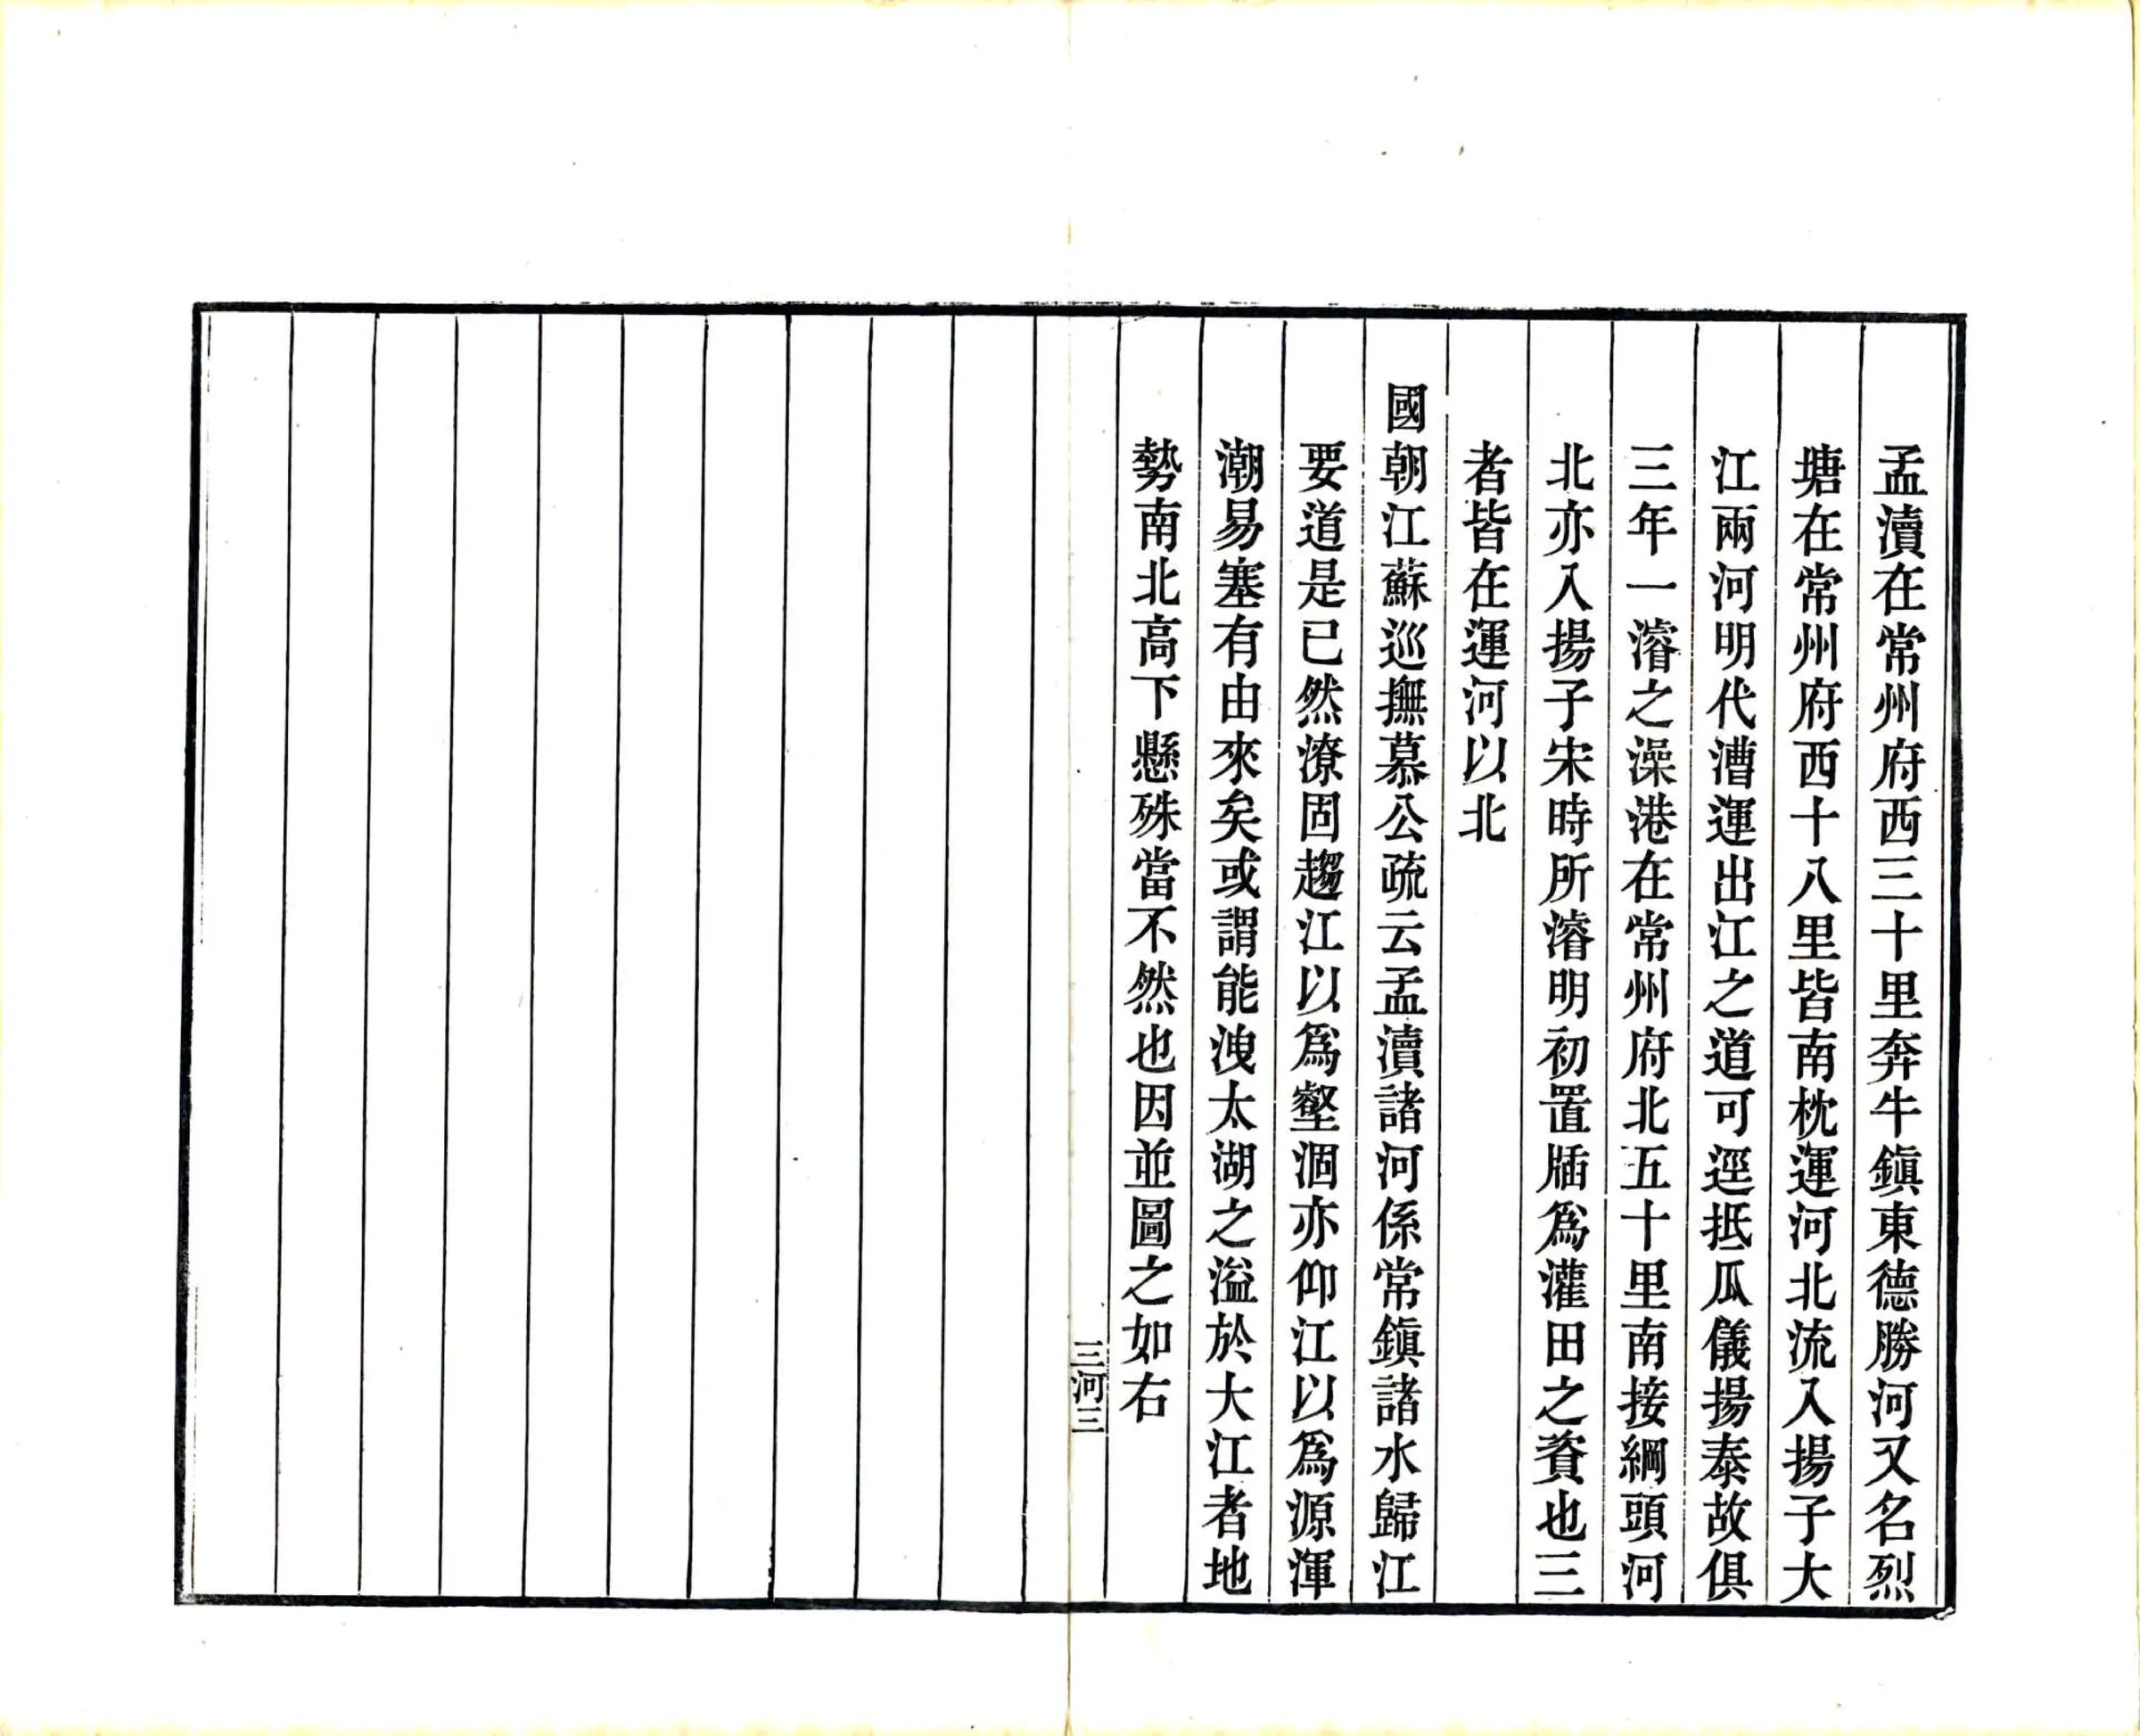 孟瀆在常州府西三十里奔牛鎭東德勝河又名烈
塘在常州府西十八里皆南枕運河北流入揚子大
江兩河明代漕運出江之道可逕抵瓜儀揚泰故俱
三年一濬之澡港在常州府北五十里南接綱頭河
北亦入揚子宋時所濬明初置牐爲灌田之資也三
者皆在運河以北
國朝江蘇巡撫慕公疏云孟瀆諸河係常鎭諸水歸江
要道是已然潦固趨江以爲壑涸亦仰江以爲源渾
潮易塞有由來矣或謂能洩太湖之溢於大江者地
勢南北高下懸殊當不然也因並圖之如右
三河三